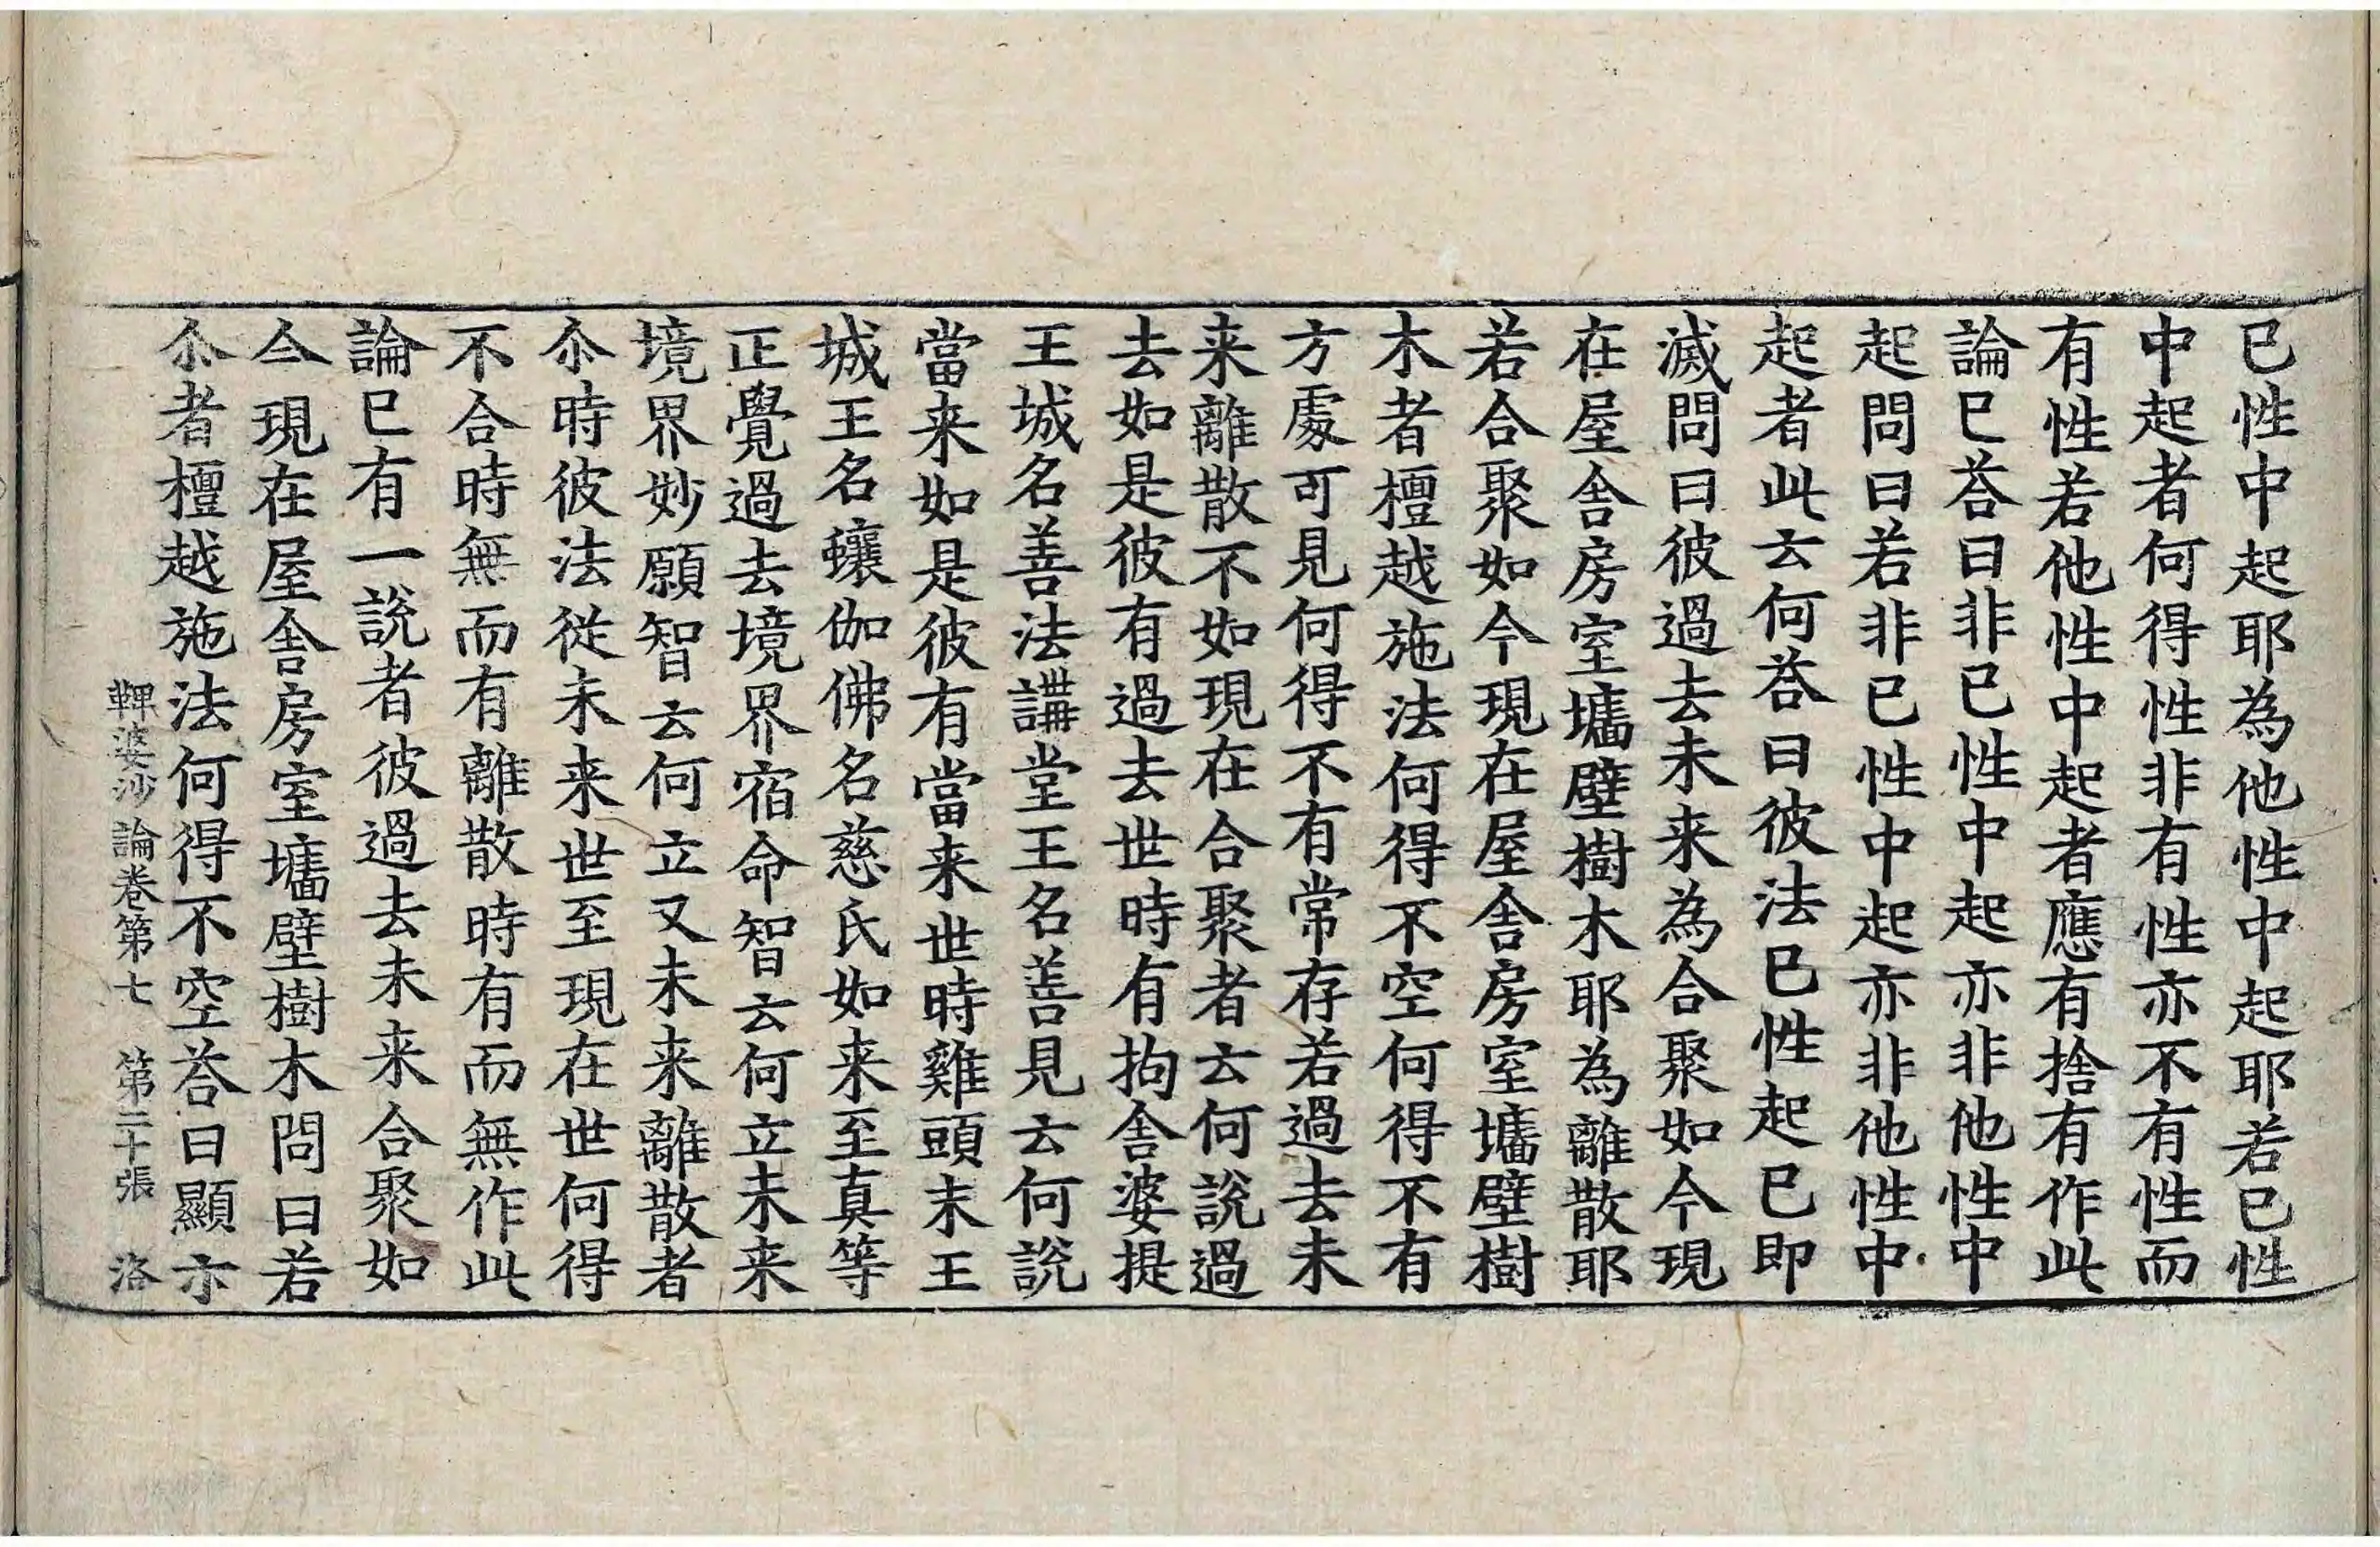 已性中起耶為他性中起耶若已性
中起者何得性非有性亦不有性而
有性若他性中起者應有捨有作此
論已荅曰非已性中起亦非他性中
起問曰若非已性中起亦非他性中
起者此云何荅曰彼法已性起已即
滅問曰彼過去未来為合聚如今現
在屋舍房室墻壁樹木耶為離散耶
若合聚如今現在屋舍房室墻壁樹
木者檀越施法何得不空何得不有
方處可見何得不有常存若過去未
来離散不如現在合聚者云何說過
去如是彼有過去世時有拘舍婆提
王城名善法講堂王名善見云何說
當来如是彼有當来世時雞頭末王
城王名蠰伽佛名慈氏如来至真等
正覺過去境界宿命智云何立未来
境界妙願智云何立又未来離散者
尒時彼法從未来世至現在世何得
不合時無而有離散時有而無作此
論已有一說者彼過去未来合聚如
今現在屋舍房室墻壁樹木問曰若
尒者檀越施法何得不空荅曰顯亦
鞞婆沙論卷第七　第二十張　洛